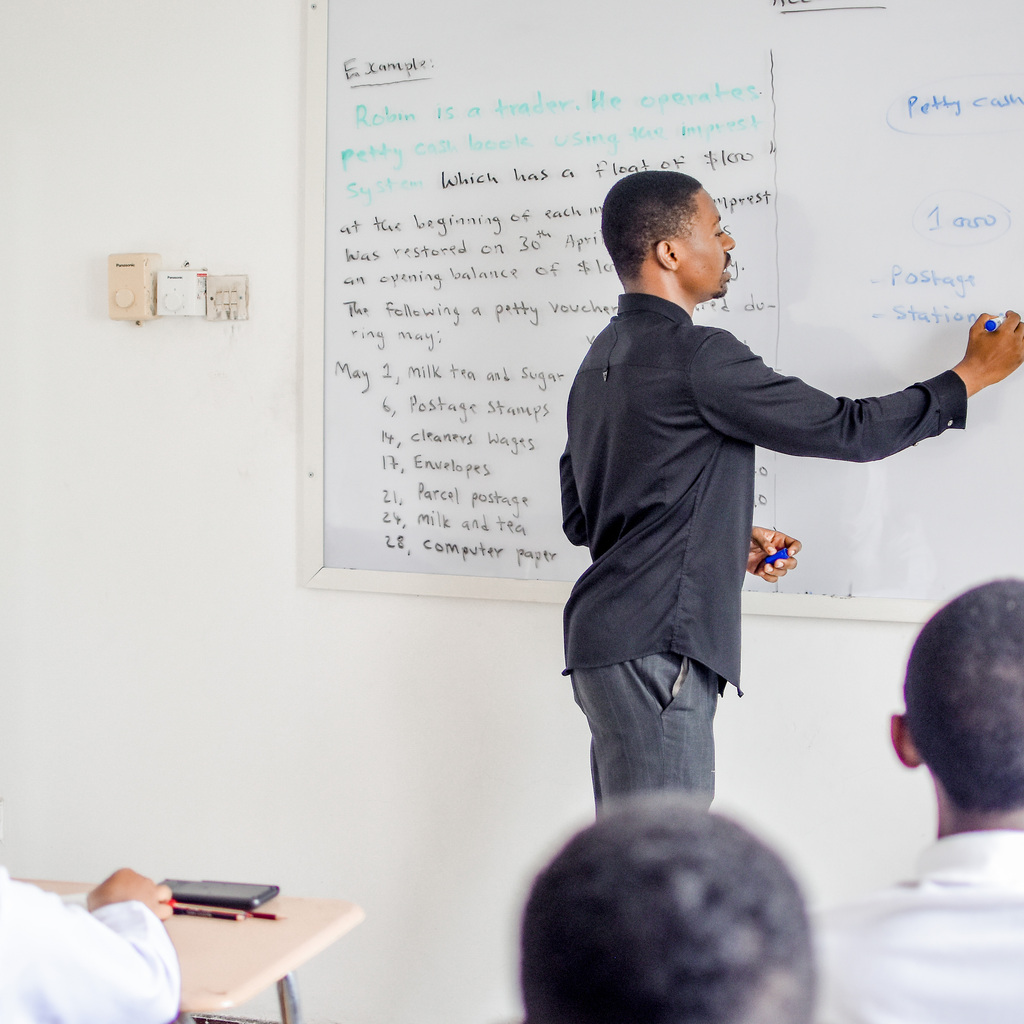 Example:
Robin is a trader. He operates
petty cash book using the imprest
system which has a float of $100
at the beginning of each imprest
was restored on 30th April
an opening balance of
The following a petty voucher du-
ring may;
May 1, milk tea and Sugar
6, Postage Stamps
14, cleaners wages
17, Envelopes
21, Parcel postage
24, milk and tea
28, computer paper
Petty cash
- Postage
- Station
Panasonic
Panasonic